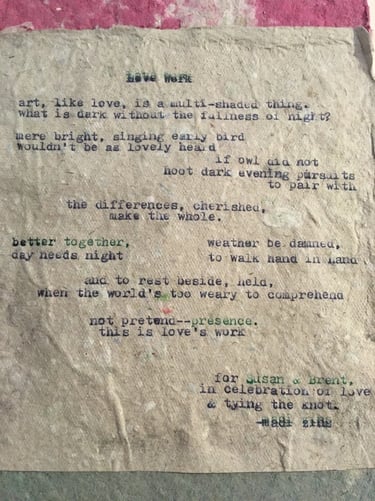 Love Work
art, like love, is a multi-shaded thing.
what is dark without the fullness of night?
mere bright, singing early bird
wouldn't be as lovely heard
if owl did not
hoot dark evening pursuits
to pair with
the differences, cherished,
make the whole.
better together,
day needs night
weather be damned,
to walk hand in hand
and to rest beside, held,
when the world's too weary to comprehend
not pretend--presence.
this is love's work
for Susan & Brent,
in celebration of love
& tying the knot.